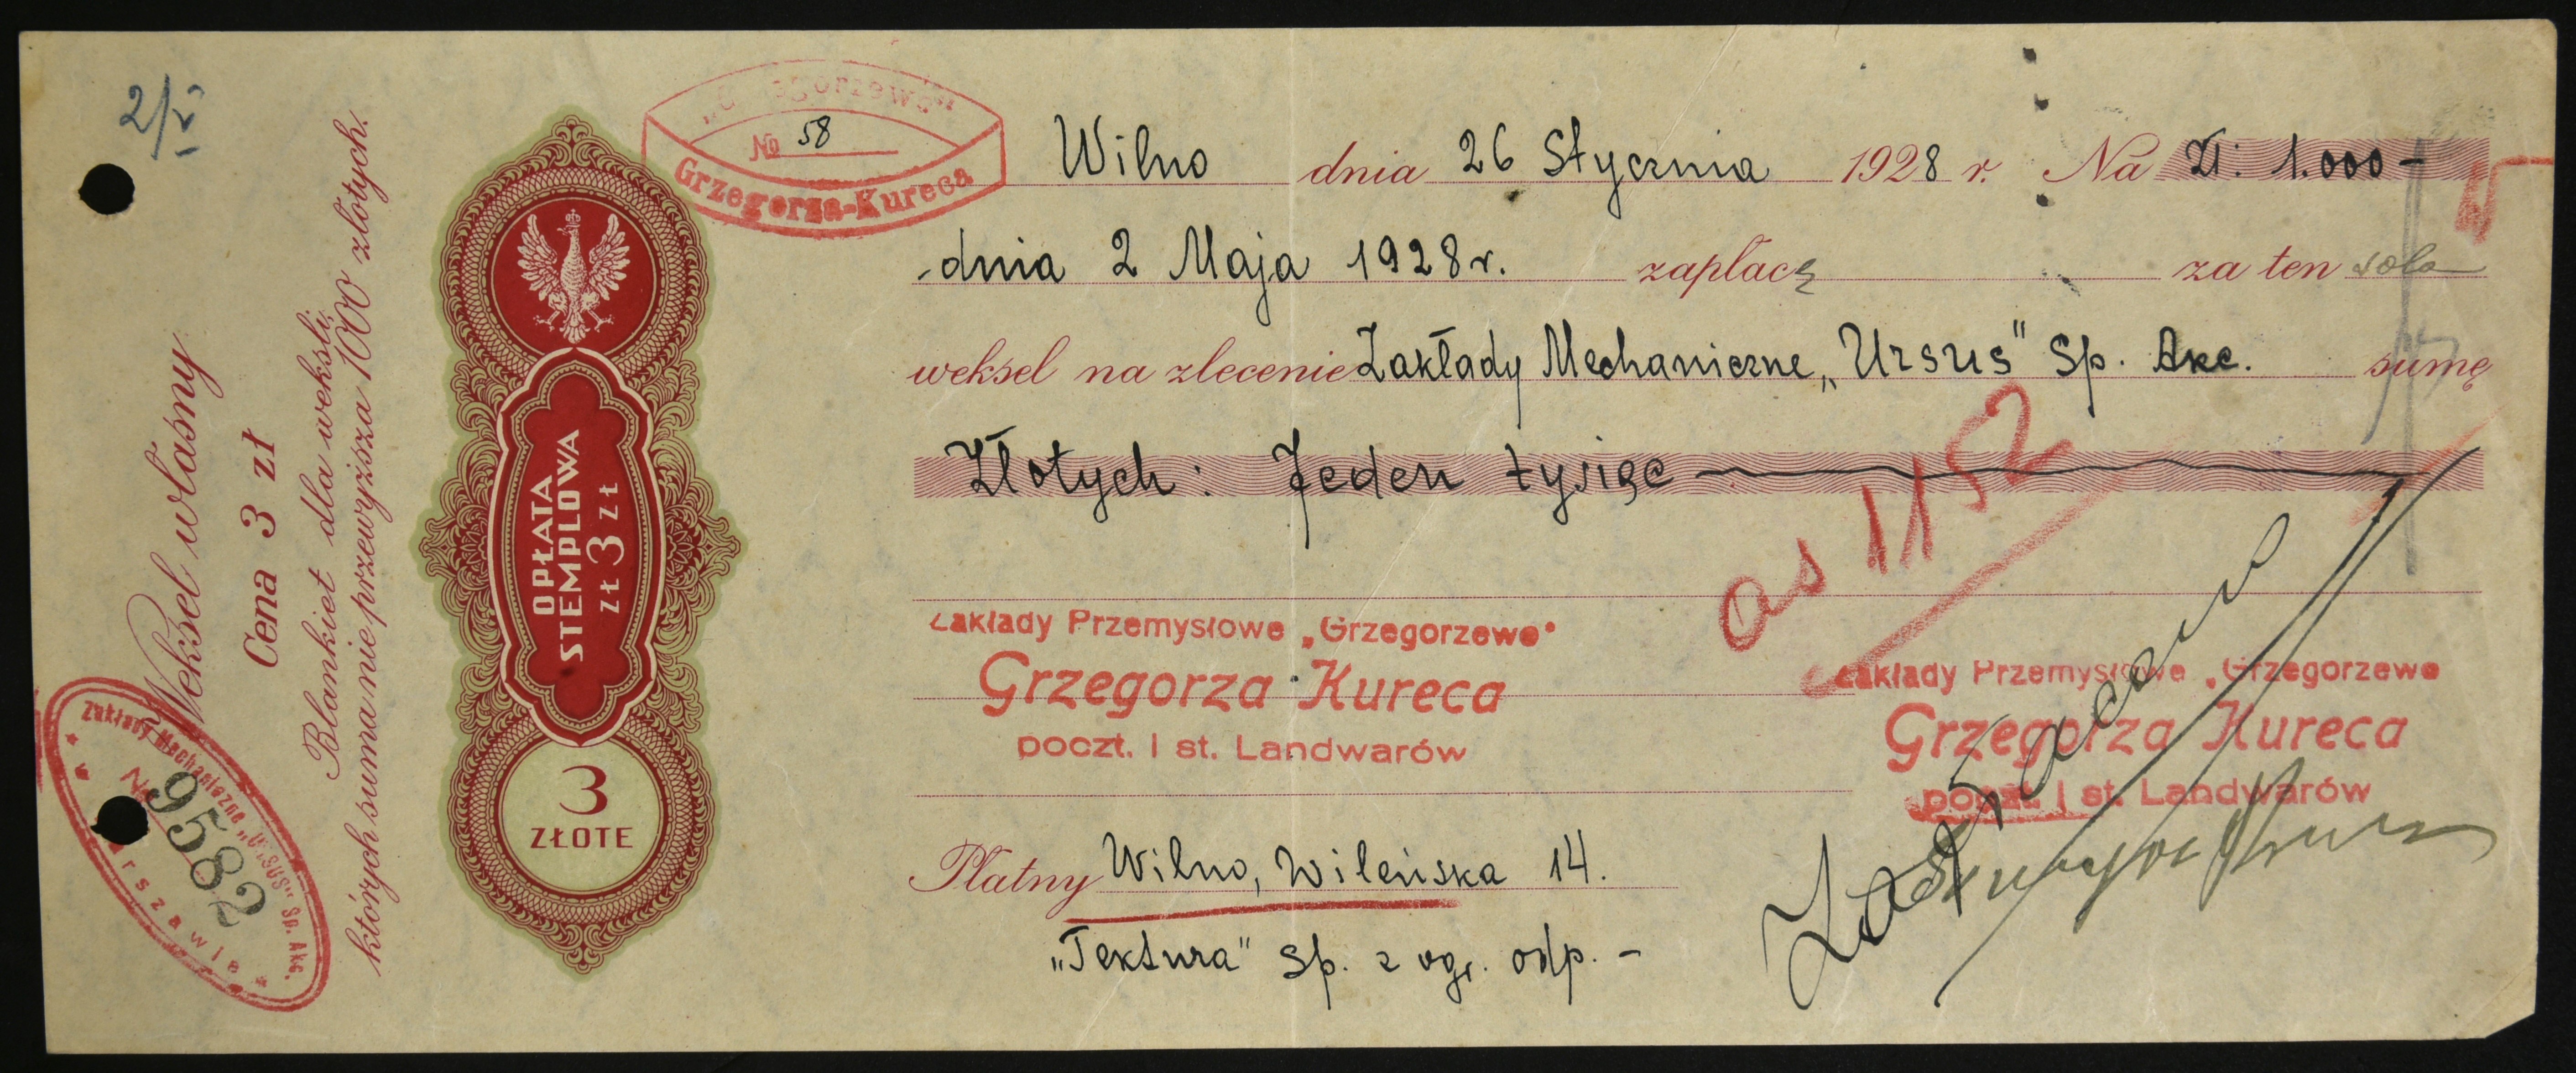 2/V
Weksel własny
Cena 3 zł
Blankiet dla weksli,
których suma nie przewyższa 1000 złotych.
Zakłady Mechaniczne „Ursus" Sp. Akc.
№ 9582
Warszawie
OPŁATA
STEMPLOWA
ZŁ 3 ZŁ
3
ZŁOTE
„Grzegorzewo"
№ 58
Grzegorza-Kureca
Wilno dnia 26 Stycznia 1928 r. Na Zł: 1.000 –
dnia 2 Maja 1928 r. zapłacę za ten sola
weksel na zlecenie Zakłady Mechaniczne „Ursus" Sp. Akc. sumę
Złotych: Jeden tysiąc
as 1152
Zakłady Przemysłowe „Grzegorzewo"
Grzegorza Kureca
poczt. i st. Landwarów
Zakłady Przemysłowe „Grzegorzewo
Grzegorza Kureca
poczt. i st. Landwarów
Płatny Wilno, Wileńska 14.
„Tektura" Sp. z ogr. odp. –